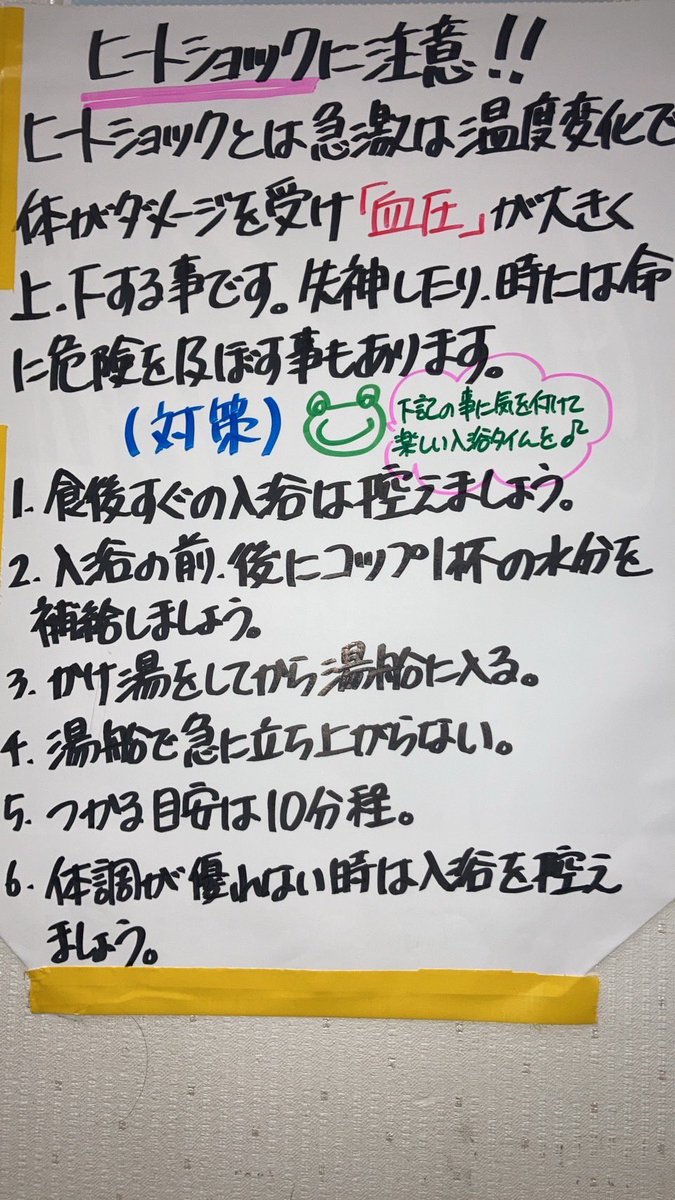 ヒートショックに注意!!
ヒートショックとは急激な温度変化で
体がダメージを受け「血圧」が大きく
上、下する事です。失神したり、時には命
に危険を及ぼす事もあります。
(対策)
下記の事に気を付けて
楽しい入浴タイムを♪
1. 食後すぐの入浴は控えましょう。
2. 入浴の前、後にコップ1杯の水分を
補給しましょう。
3. かけ湯をしてから湯船に入る。
4. 湯船で急に立ち上がらない。
5. つかる目安は10分程。
6. 体調が優れない時は入浴を控え
ましょう。